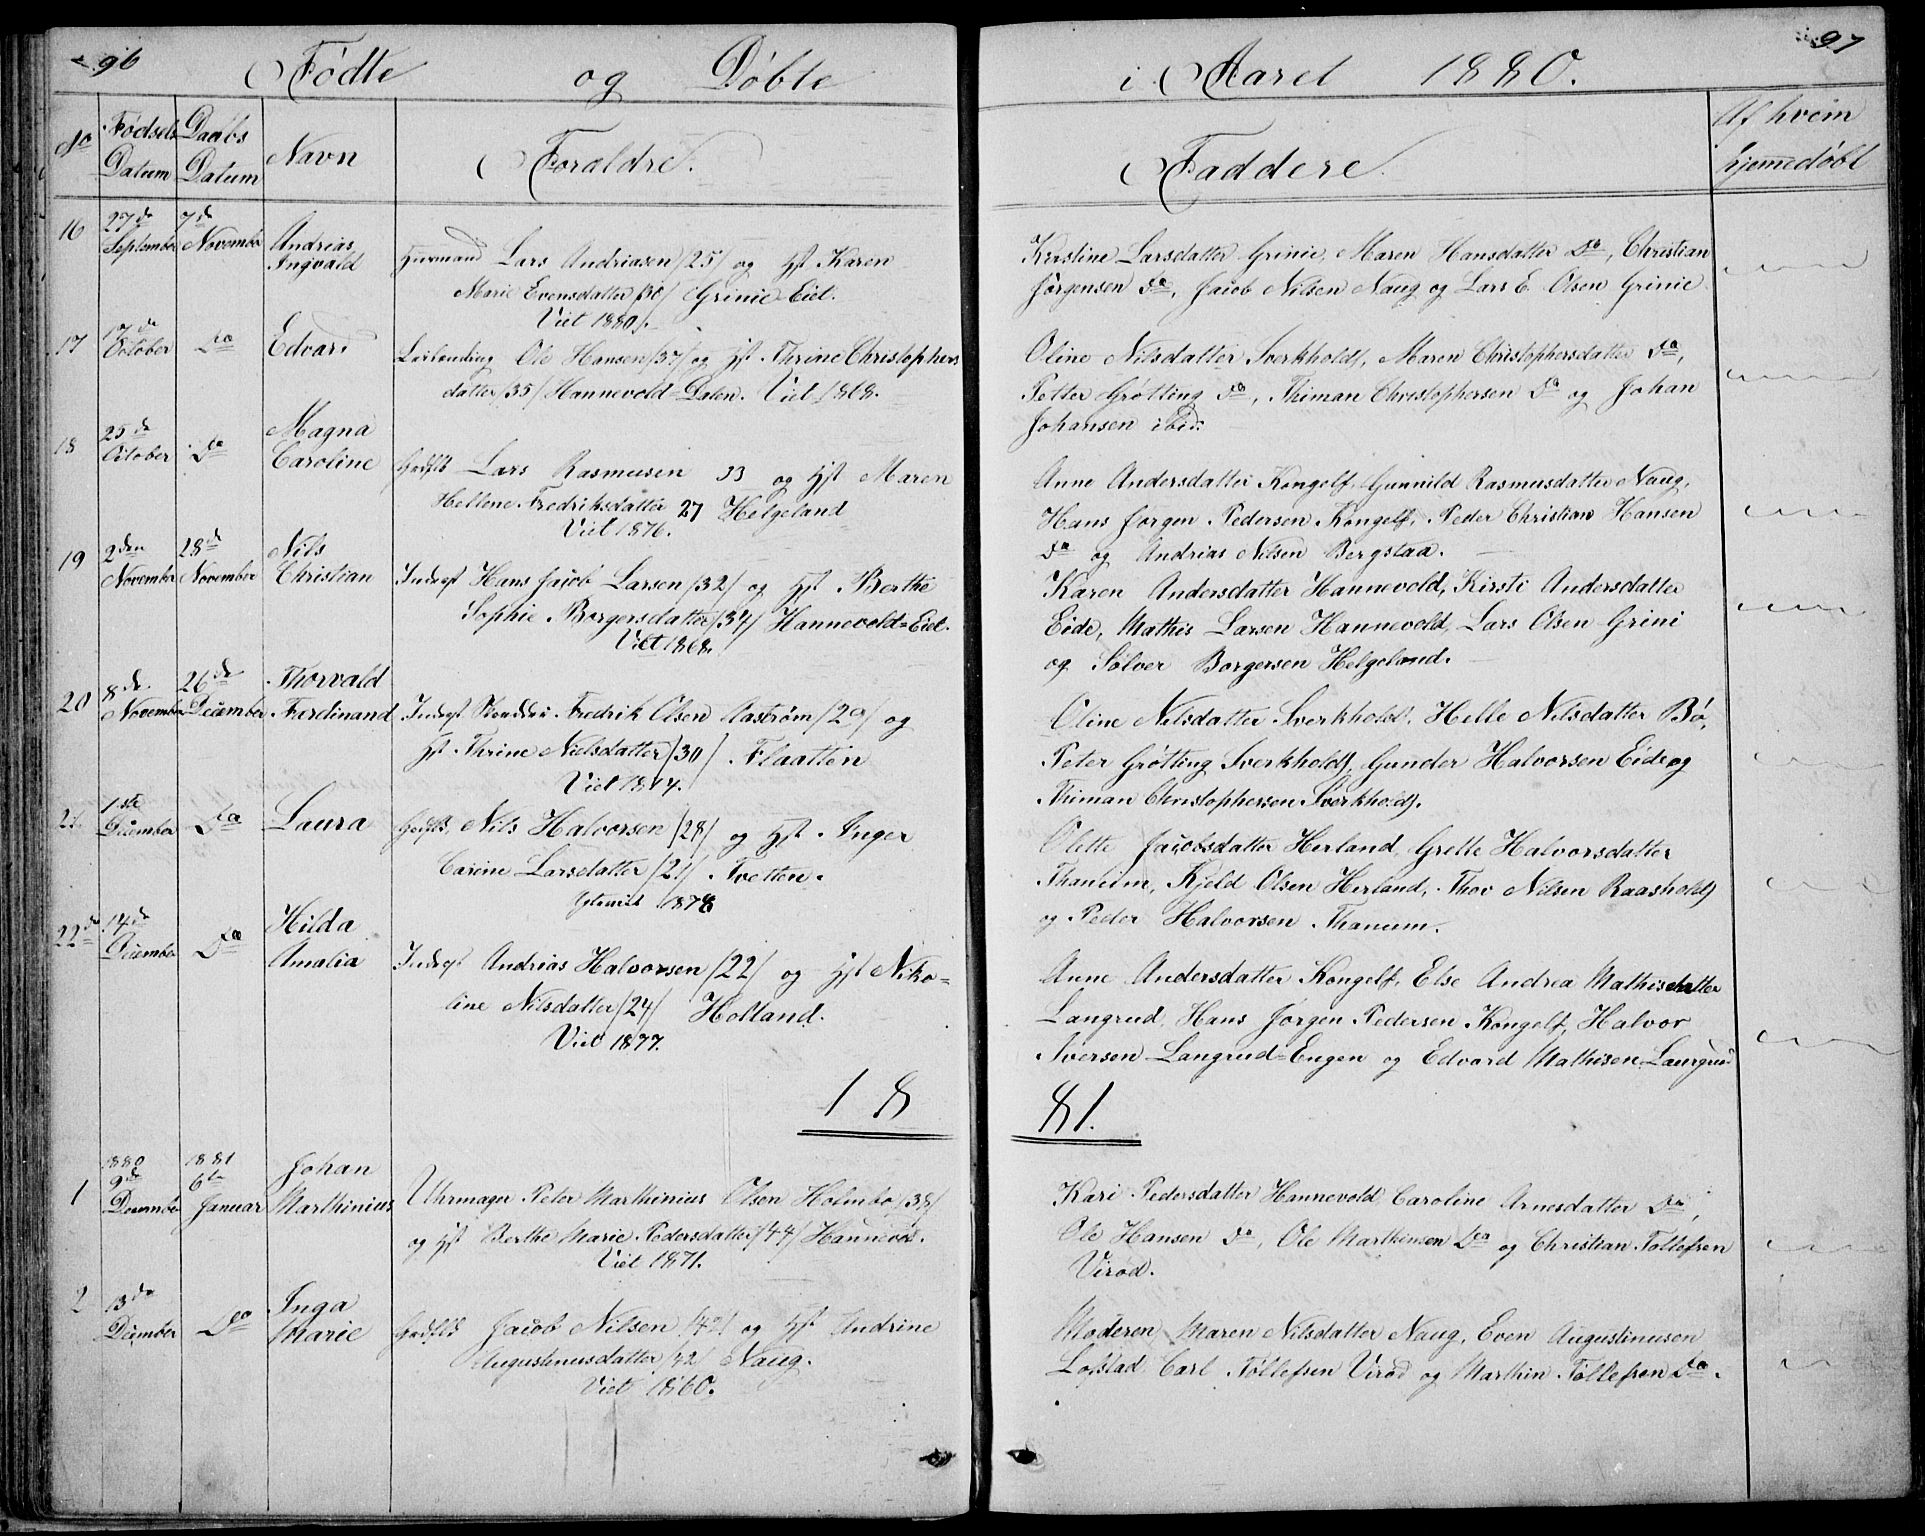 96
Fødte og Døbte
No
Fødsels Datum
Daabs Datum
Navn
Foraldre.
16
27de September
7de November
Andrias Ingvald
Huusmand Lars Andriasen /25/ og Hst Karen
Marie Evensdatter /30/ Grinie Eiet.
Viet 1880.
17
17de October
Do
Edvard
Leilending Ole Hansen /37/ og Hst Thrine Christophers
datter /35/ Hannevold Dalen. Viet 1868.
18
25de October
Do
Magna Caroline
Lars Rasmusen 33 og Hst Maren
Hellene Fredriksdatter 27 Helgeland
Viet 1876.
19
2den November
28de November
Nils Christian
Inderst Hans Jacob Larsen /32/ og Hst Berthe
Sophie Borgersdatter /34/ Hannevold=Eiet.
Viet 1868.
20
8de November
26de December
Thorvald Ferdinand
Inderst Fredrik Olsen Aastrøm /29/ og
Hst Thrine Nielsdatter /30/ Flaatten
Viet 1874.
21
1ste December
Do
Laura
Nils Halvorsen /28/ og Hst Inger
Carine Larsdatter /21/ Tvetten.
1878
22de
14de December
Do
Hilda Amalia
Inderst Andrias Halvorsen /22/ og Hst Niko=
line Nilsdatter /24/ Holland.
Viet 1877.
18
1
1880 9de December
1881 6te Januar
Johan Marthinius
Uhrmager Peter Marthinius Olsen Holmbo /38/
og Hst Berthe Marie Pedersdatter /44/ Hannevold.
Viet 1871.
2
13de December
Do
Inga Marie
Jacob Nilsen og Hst Andrine
Augustinusdatter /42/ Naug.
Viet 1860.
97
i Aaret 1880.
Faddere.
Af hvem hjemedøbt
Kirstine Larsdatter Grinie, Maren Hansdatter Do, Christian
Jørgensen Do, Jacob Nilsen Naug og Lars E. Olsen Grinie
Oline Nilsdatter Sverkholdt, Maren Christophersdatter Do,
Petter Grøtting Do, Thiman Christophersen Do og Johan
Johansen ibid.
Anne Andersdatter Kongelf, Gunnild Rasmusdatter Naug,
Hans Jørgen Pedersen Kongelf, Peder Christian Hansen
Do og Andrias Nilsen Bergstaa.
Karen Andersdatter Hannevold, Kirsti Andersdatter
Eide, Mathis Larsen Hannevold, Lars Olsen Grini
og Sølver Borgersen Helgeland.
Oline Nilsdatter Sverkholdt, Helle Nilsdatter Bø,
Peter Grøtting Sverkholdt, Gunder Halvorsen Eide og
Thiman Christophersen Sverkholdt.
Olette Jacobsdatter Herland, Grette Halvorsdatter
Thanum, Kjeld Olsen Herland, Thov Nilsen Raasholdt
og Peder Halvorsen Thanum.
Anne Andersdatter Kongelf, Else Andrea Mathisdatter
Langrud, Hans Jørgen Pedersen Kongelf, Halvor
Iversen Langrud=Engen og Edvard Mathisen Langrud
81.
Kari Pedersdatter Hannevold, Caroline Arnesdatter Do,
Ole Hansen Do, Ole Marthinsen Do og Christian Tollefsen
Virød.
Moderen, Maren Nilsdatter Naug, Even Augustinusen
Lofstad, Carl Tollefsen Virød og Marthin Tollefsen Do.